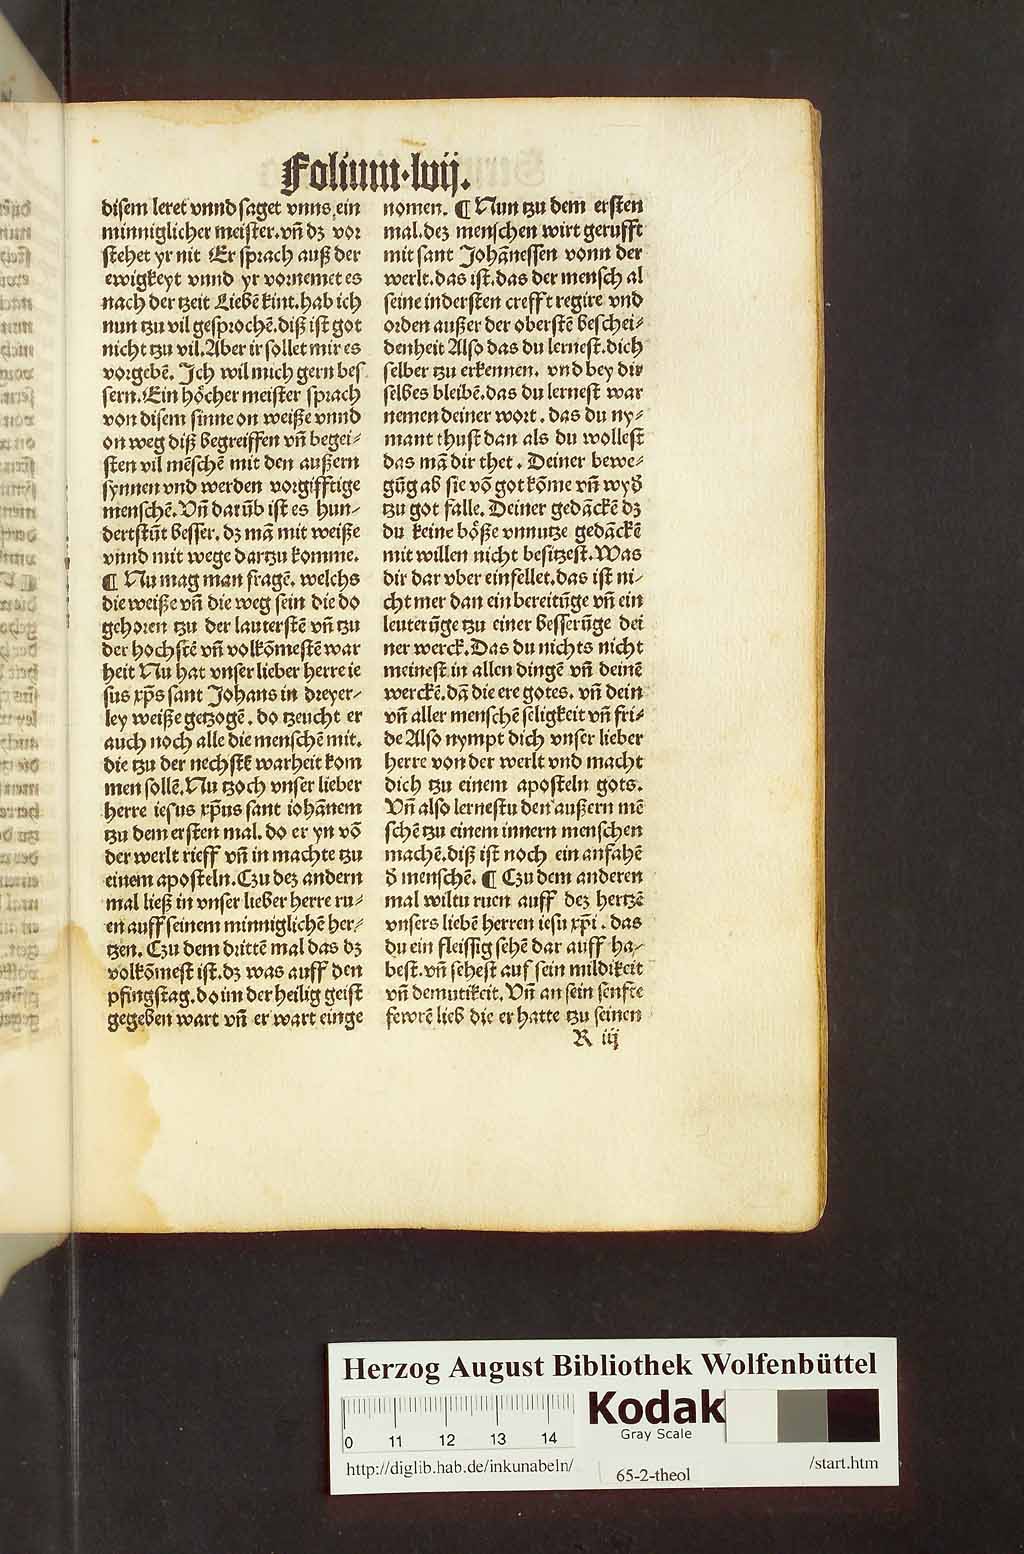 Folium·lvij.
disem leret vnnd saget vnns, ein
minniglicher meister. vñ dz vor
stehet yr nit Er sprach auß der
ewigkeyt vnnd yr vornemet es
nach der tzeit Liebē kint. hab ich
nun tzu vil gesprochē. diß ist got
nicht tzu vil. Aber ir sollet mir es
vorgebē. Ich wil mich gern bes
sern. Ein höcher meister sprach
von disem sinne on weiße vnnd
on weg diß begreiffen vñ begei⸗
sten vil mēschē mit den außern
synnen vnd werden vorgifftige
menschē. Vñ darūb ist es hun⸗
dertstūt besser. dz mā mit weiße
vnnd mit wege dartzu komme.
¶ Nu mag man fragē. welchs
die weiße vñ die weg sein die do
gehoren tzu der lauterstē vñ tzu
der hochstē vñ volkōmestē war
heit Nu hat vnser lieber herre ie
sus xp̄s sant Johans in dreyer⸗
ley weiße getzogē. do tzeucht er
auch noch alle die menschē mit.
die tzu der nechstē warheit kom
men sollē. Nu tzoch vnser lieber
herre iesus xp̄us sant iohānem
tzu dem ersten mal. do er yn vō
der werlt rieff vñ in machte tzu
einem aposteln. Czu dez andern
mal ließ in vnser lieber herre ru⸗
en auff seinem minniglichē her⸗
tzen. Czu dem drittē mal das dz
volkōmest ist. dz was auff den
pfingstag. do im der heilig geist
gegeben wart vñ er wart einge
nomen. ¶ Nun tzu dem ersten
mal. dez menschen wirt gerufft
mit sant Johānessen vonn der
werlt. das ist. das der mensch al
seine indersten crefft regire vnd
orden außer der oberstē beschei⸗
denheit Also das du lernest. dich
selber tzu erkennen. vnd bey dir
selbes bleibē. das du lernest war
nemen deiner wort. das du ny⸗
mant thust dan als du wollest
das mā dir thet. Deiner bewe⸗
gūg ab sie vō got kōme vñ wyđ
tzu got falle. Deiner gedāckē dz
du keine böße vnnutze gedāckē
mit willen nicht besitzest. Was
dir dar vber einfellet. das ist ni⸗
cht mer dan ein bereitūge vñ ein
leuterūge tzu einer besserūge dei
ner werck. Das du nichts nicht
meinest in allen dingē vñ deinē
werckē. dā die ere gotes. vñ dein
vñ aller menschē seligkeit vñ fri⸗
de Also nympt dich vnser lieber
herre von der werlt vnd macht
dich tzu einem aposteln gots.
Vñ also lernestu den außern mē
schē tzu einem innern menschen
machē. diß ist noch ein anfahē
đ menschē. ¶ Czu dem anderen
mal wiltu ruen auff dez hertzē
vnsers liebē herren iesu xp̄i. das
du ein fleissig sehē dar auff ha⸗
best. vñ sehest auf sein mildikeit
vñ demutikeit. Vñ an sein senfte
fewrē lieb die er hatte tzu seinen
R iij
Herzog August Bibliothek Wolfenbüttel
0 11 12 13 14
Kodak
Gray Scale
http://diglib.hab.de/inkunabeln/ 65-2-theol /start.htm